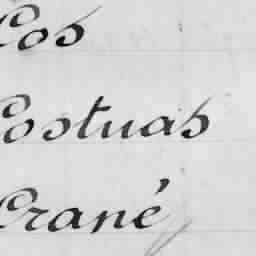 Cos
Costuas
Crané